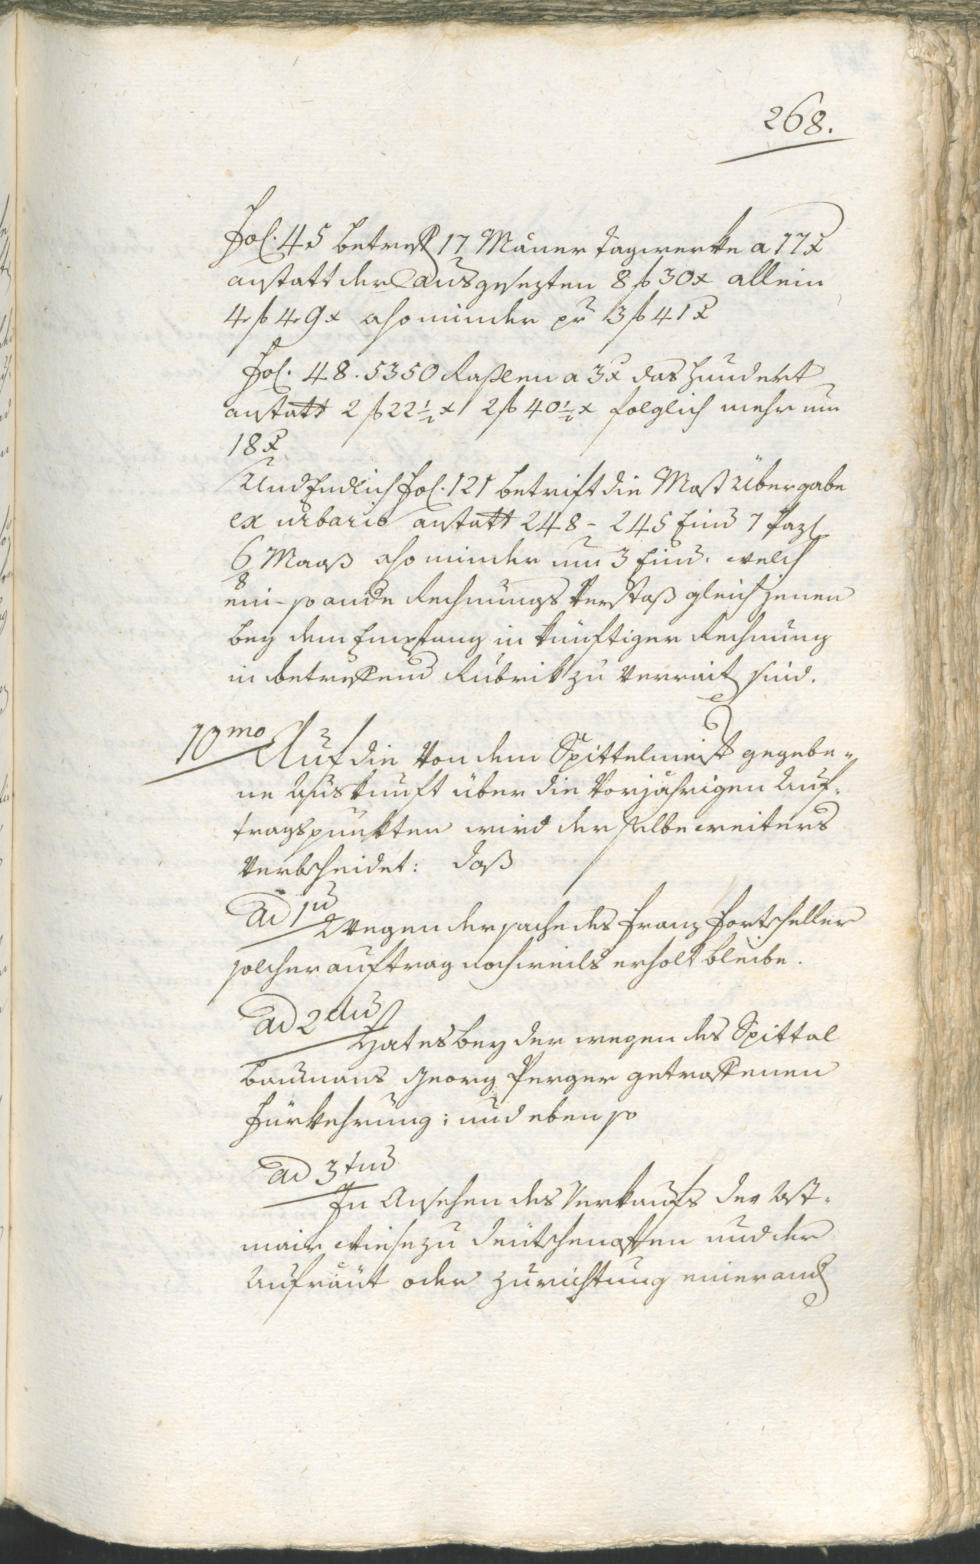 268.
Fol. 45 betreff 17 Mäner Tagwerke a 17 x
anstatt der ausgesezten 8 f 30 x allein
4 f 49 x also minder pr 3 f 41 x
Fol. 48. 5350 Raßlen a 3 x das Hundert
anstatt 2 f 22 ½ x 2 f 40 ½ x folglich mehr um
18 x
Und Endlich Fol. 121 betrift die Most Übergabe
ex urbario anstatt 248 - 245 Eim 7 Paz
6 Maaß also minder um 3 Eim. welch
ein- so andere Rechnungs Verstoß gleich jenen
bey dem Empfang in künftiger Rechnung
in betreffend Rubrik zu verrait sind.
10mo Auf die von dem Spittelmeist gegebe-
ne Auskunft über die vorjährigen Auf-
tragspunkten wird derselbe weiters
verbscheidet: daß
ad 1um Wegen der sache des Franz Fortscheller
solcher auftrag nochmals erholt bleibe.
ad 2dum Hat es bey der wegen des Spittal
baumans Georg Perger getroffenen
Fürkehrung: und eben so
ad 3tium In Ansehen des Verkaufs der Ast-
mair Wiese zu Deutschenoffen und der
Aufräut oder Zurichtung einer and